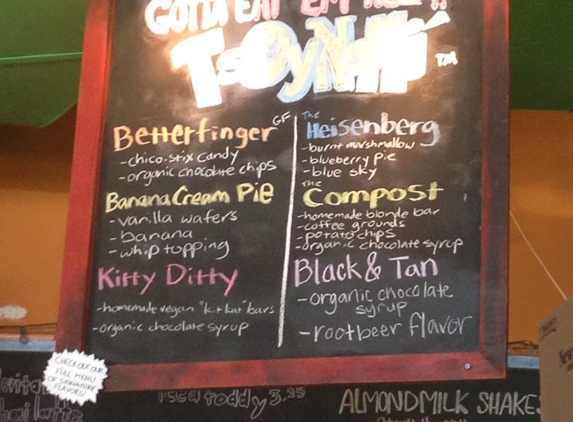 GOTTA EAT 'EM ALL!!
TSOYNAMI™
Betterfinger GF
-chico-stix candy
-organic chocolate chips
Banana Cream Pie
-vanilla wafers
-banana
-whip topping
Kitty Ditty
-homemade vegan "kit kat" bars
-organic chocolate syrup
The
Heisenberg
-burnt marshmallow
-blueberry pie
-blue sky
The
Compost
-homemade blonde bar
-coffee grounds
-potato chips
-organic chocolate syrup
Black & Tan
-organic chocolate
syrup
-rootbeer flavor
CHECK OUT OUR
FULL MENU
OF SIGNATURE
FLAVORS!
toddy 3.25
ALMONDMILK SHAKES